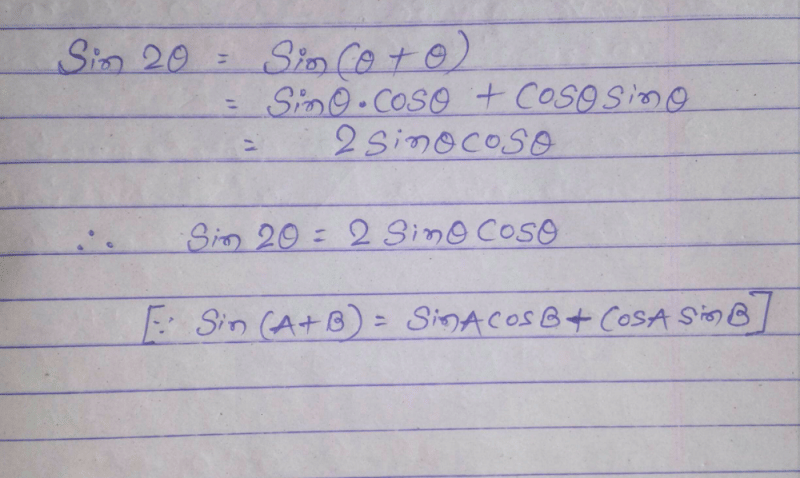 Sin 2θ = Sin(θ + θ)
= Sinθ · cosθ + cosθ Sinθ
= 2 Sinθ cosθ
∴ Sin 2θ = 2 Sinθ Cosθ
[∵ Sin (A+B) = SinA cosB + CosA SinB]